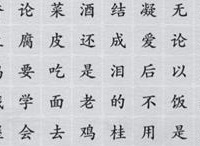 论菜酒结凝无
腐皮还成爱论
要吃是泪后以
学面老的不饭
会去鸡桂用是